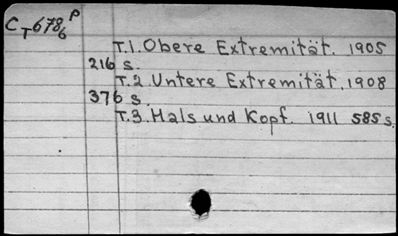 CT6786P
T.1. Obere Extremität. 1905
216 s.
T.2. Untere Extremität. 1908
376 s.
T.3. Hals und Kopf. 1911 585 s.